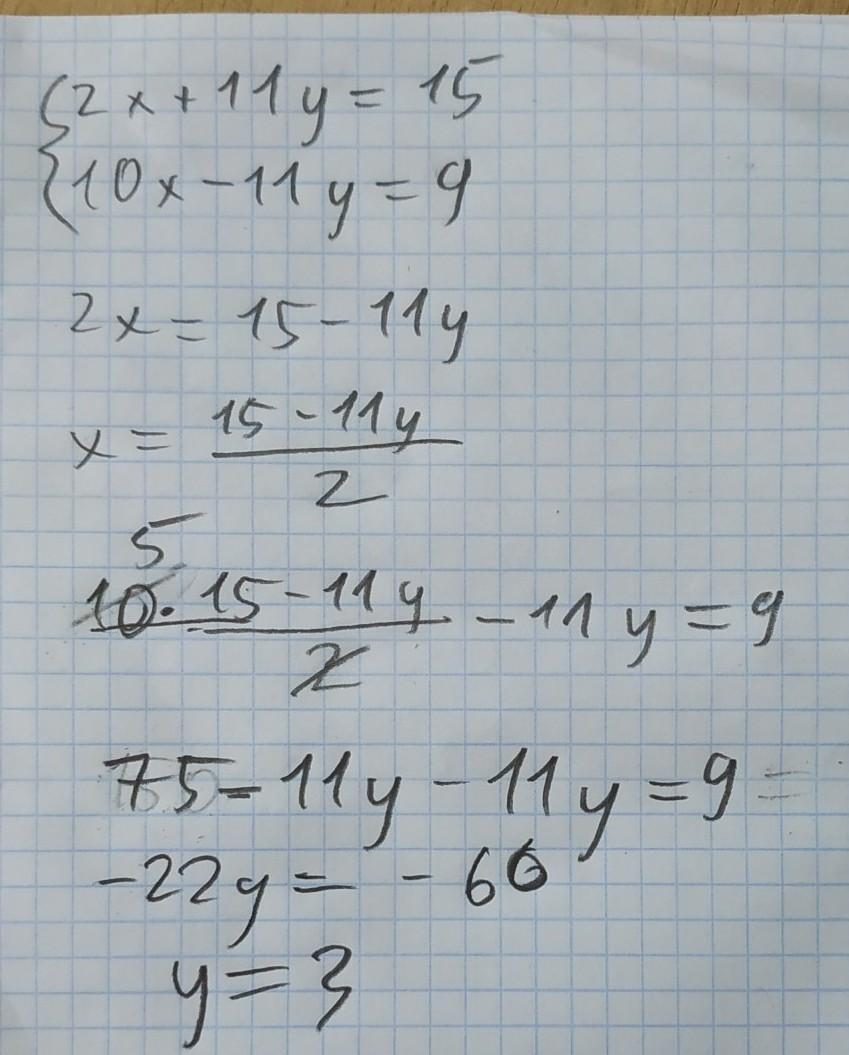 {2x + 11y = 15
{10x - 11y = 9
2x = 15 - 11y
x = (15 - 11y)/2
5
10 · (15 - 11y)/2 - 11y = 9
75 - 11y - 11y = 9 =
-22y = - 66
y = 3